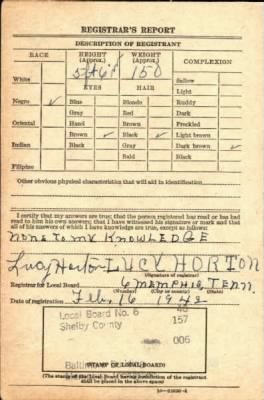 REGISTRAR'S REPORT
DESCRIPTION OF REGISTRANT
RACE
HEIGHT (Approx.)
WEIGHT (Approx.)
COMPLEXION
White
5 ft 6 in
150
Sallow
EYES
HAIR
Light
Negro ✓
Blue
Blonde
Ruddy
Gray
Red
Dark
Oriental
Hazel
Brown
Freckled
Brown ✓
Black ✓
Light brown
Indian
Black
Gray
Dark brown ✓
Bald
Black
Filipino
Other obvious physical characteristics that will aid in identification
I certify that my answers are true; that the person registered has read or has had
read to him his own answers; that I have witnessed his signature or mark and that
all of his answers of which I have knowledge are true, except as follows:
NONE TO MY KNOWLEDGE
Lucy Horton - LUCY HORTON
(Signature of registrar)
Registrar for Local Board 6 MEMPHIS TENN.
(Number) (City or county) (State)
Date of registration Feb. 16 1942
Local Board No. 6
Shelby County
157
006
STAMP OF LOCAL BOARD
(The stamp of the Local Board having jurisdiction of the registrant
shall be placed in the above space)